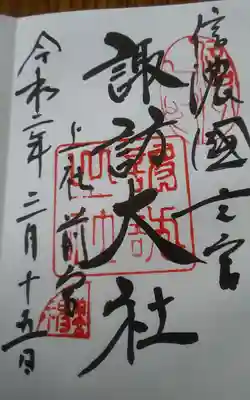 信濃國一之宮
諏訪大社
上社前宮
令和二年三月十五日